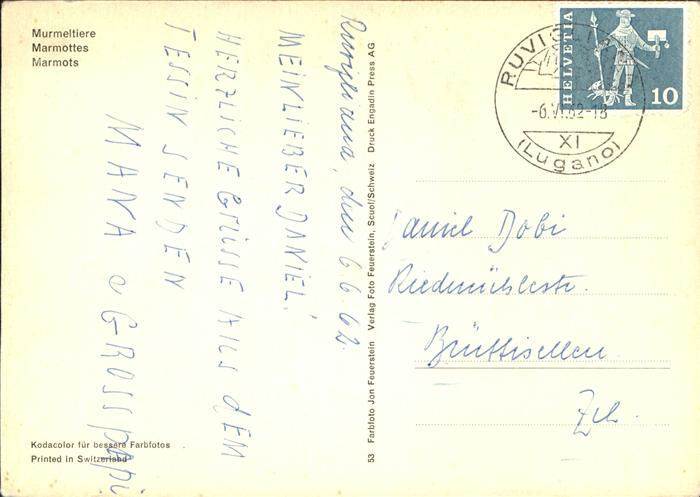 Murmeltiere
Marmottes
Marmots
Ruvigliana, den 6.6.62.
MEIN LIEBER DANIEL!
HERZLICHE GRÜSSE AUS dEM
TESSIN SENDEN
MAMA u GROSSpapi
Kodacolor für bessere Farbfotos
Printed in Switzerland
53 Farbfoto Jon Feuerstein Verlag Foto Feuerstein, Scuol/Schweiz Druck Engadin Press AG
HELVETIA
10
RUVIGLIANA
-6.VI.62-18
XI
(Lugano)
Daniel Dobi
Riedmühlestr.
Brüttisellen
Zch.